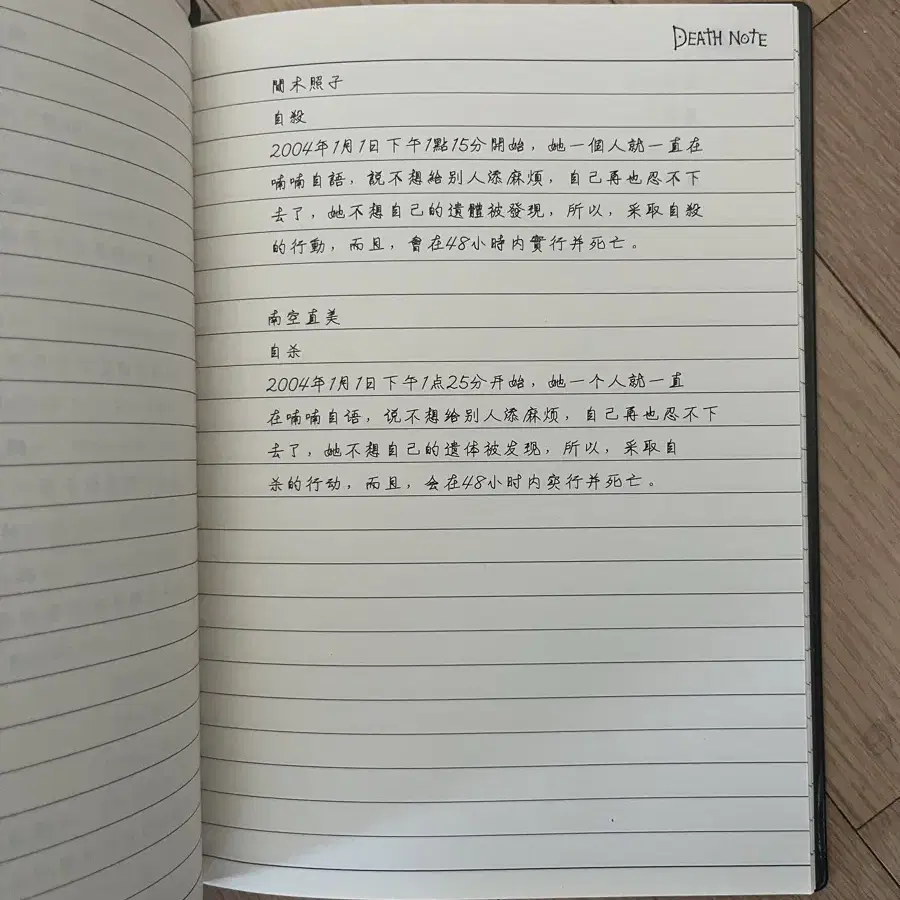 DEATH NOTE
間木照子
自殺
2004年1月1日下午1點15分開始，她一個人就一直在
喃喃自語，說不想給別人添麻煩，自己再也忍不下
去了，她不想自己的遺體被發現，所以，采取自殺
的行動，而且，會在48小時内實行并死亡。
南空直美
自杀
2004年1月1日下午1点25分开始，她一个人就一直
在喃喃自语，说不想给别人添麻烦，自己再也忍不下
去了，她不想自己的遗体被发现，所以，采取自
杀的行动，而且，会在48小时内实行并死亡。